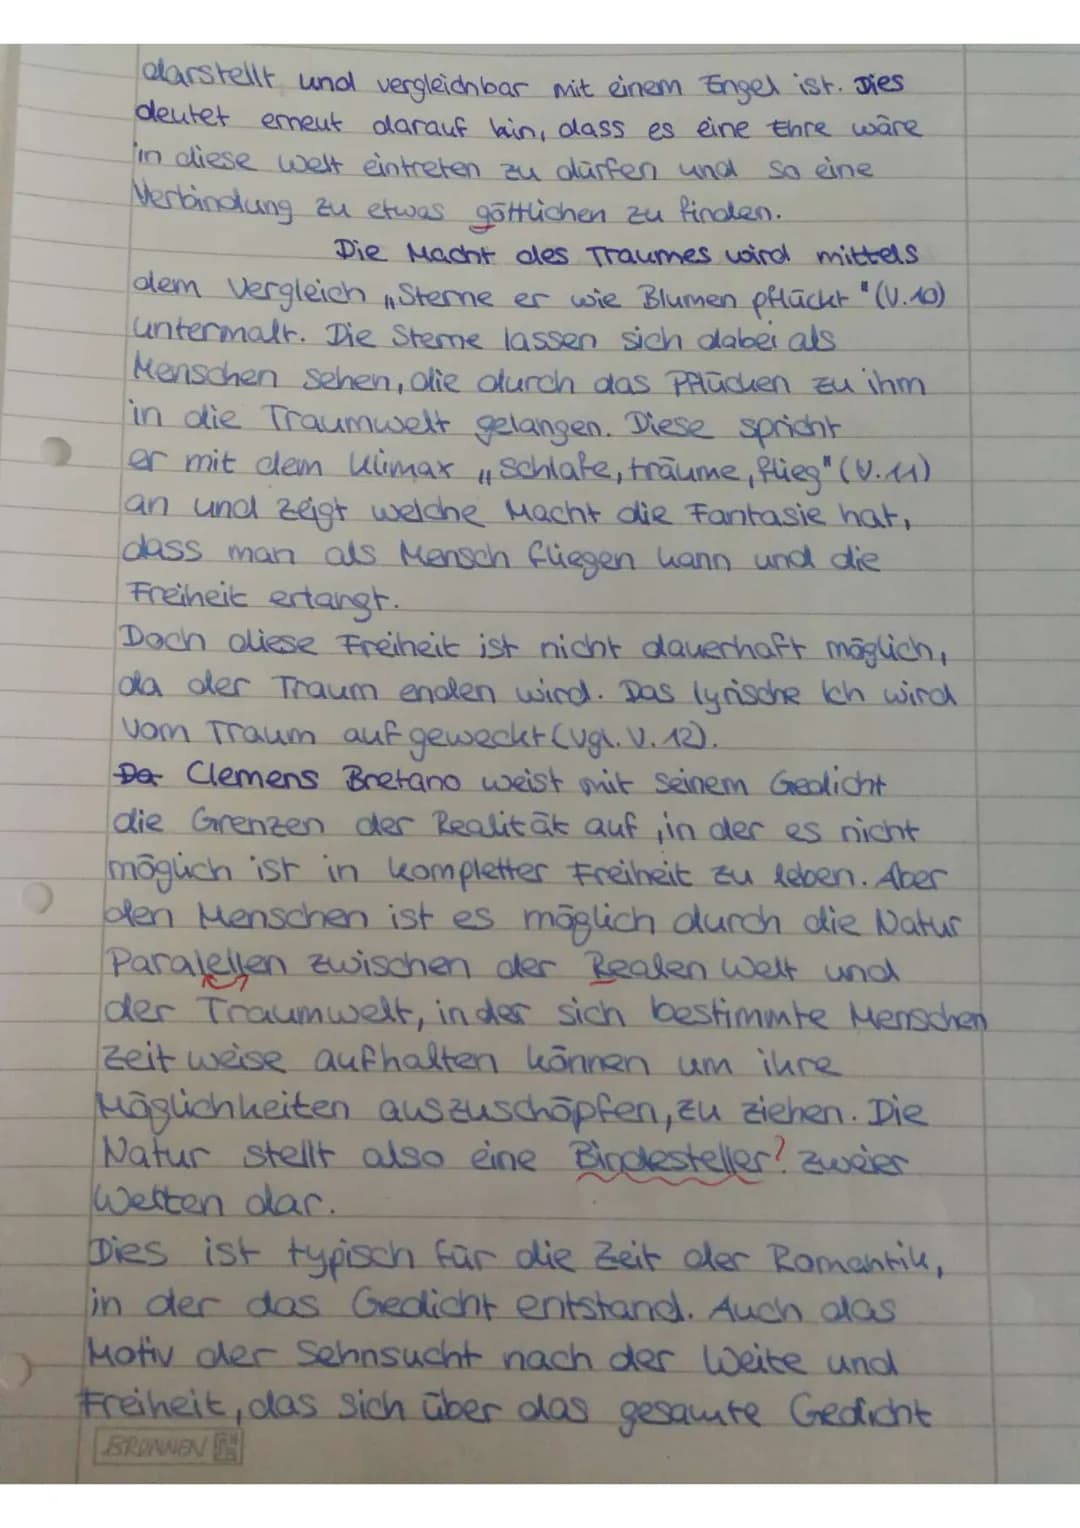 darstellt und vergleichbar mit einem Engel ist. Dies
deutet erneut darauf hin, dass es eine Ehre wäre
in diese Welt eintreten zu dürfen und so eine
Verbindung zu etwas göttlichen zu finden.
Die Macht des Traumes wird mittels
dem Vergleich „Sterne er wie Blumen pflückt" (V.10)
untermalt. Die Sterne lassen sich dabei als
Menschen sehen, die durch das Pflücken zu ihm
in die Traumwelt gelangen. Diese spricht
er mit dem Klimax „Schlafe, träume, flieg" (V.11)
an und zeigt welche Macht die Fantasie hat,
dass man als Mensch fliegen kann und die
Freiheit erlangt.
Doch diese Freiheit ist nicht dauerhaft möglich,
da der Traum enden wird. Das lyrische Ich wird
vom Traum aufgeweckt (vgl. V. 12).
Da Clemens Bretano weist mit seinem Gedicht
die Grenzen der Realität auf, in der es nicht
möglich ist in kompletter Freiheit zu leben. Aber
den Menschen ist es möglich durch die Natur
Paralellen zwischen der Realen Welt und
der Traumwelt, in der sich bestimmte Menschen
zeitweise aufhalten können um ihre
Möglichkeiten auszuschöpfen, zu ziehen. Die
Natur stellt also eine Bindesteller? zweier
Welten dar.
Dies ist typisch für die Zeit der Romantik,
in der das Gedicht entstand. Auch das
Motiv der Sehnsucht nach der Weite und
Freiheit, das sich über das gesamte Gedicht
BRUNNEN